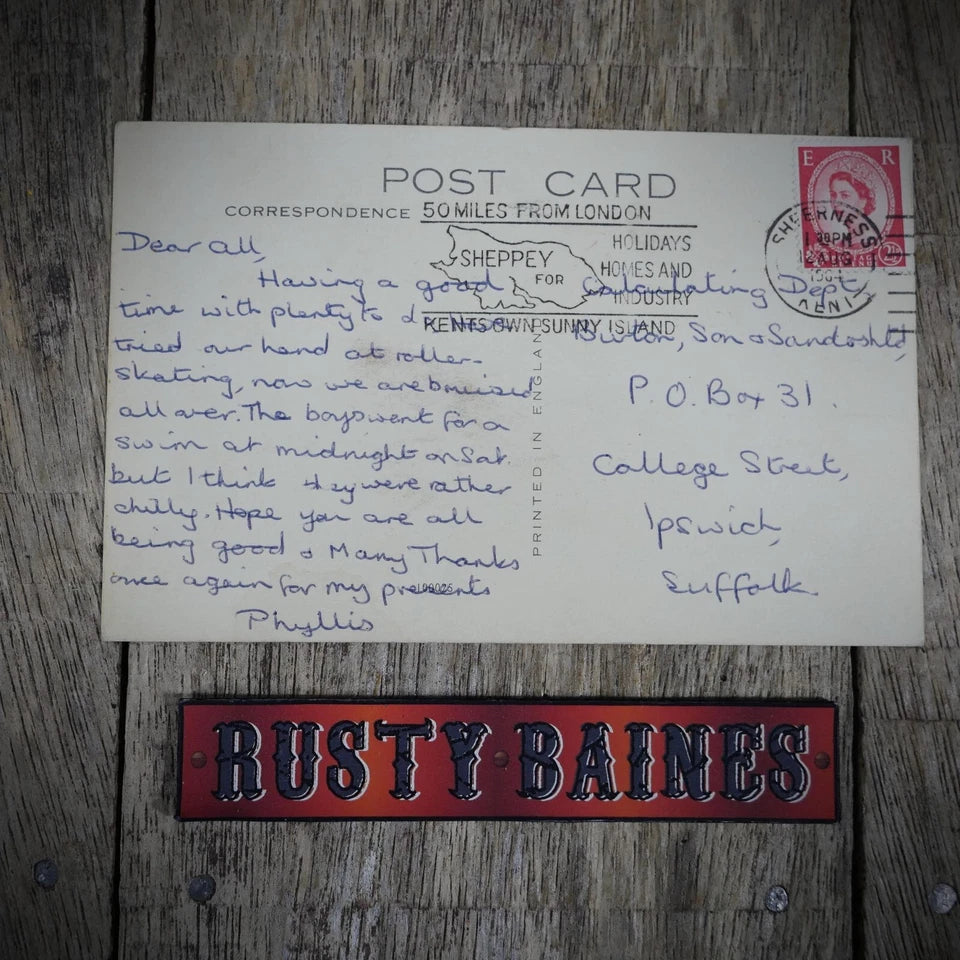 POST CARD
CORRESPONDENCE
50 MILES FROM LONDON
SHEPPEY
FOR
HOLIDAYS
HOMES AND
INDUSTRY
KENTS OWN SUNNY ISLAND
E R
2½
SHEERNESS
PM
12 AUG
KENT
Dear all,
Having a good
time with plenty to do.
tried our hand at roller-
skating, now we are bruised
all over. The boys went for a
swim at midnight on Sat.
but I think they were rather
chilly. Hope you are all
being good & Many Thanks
once again for my presents
Phyllis
PRINTED IN ENGLAND
Calculating Dept,
Burton, Son & Sanders Ltd,
P. O. Box 31.
College Street,
Ipswich,
Suffolk.
RUSTY BAINES